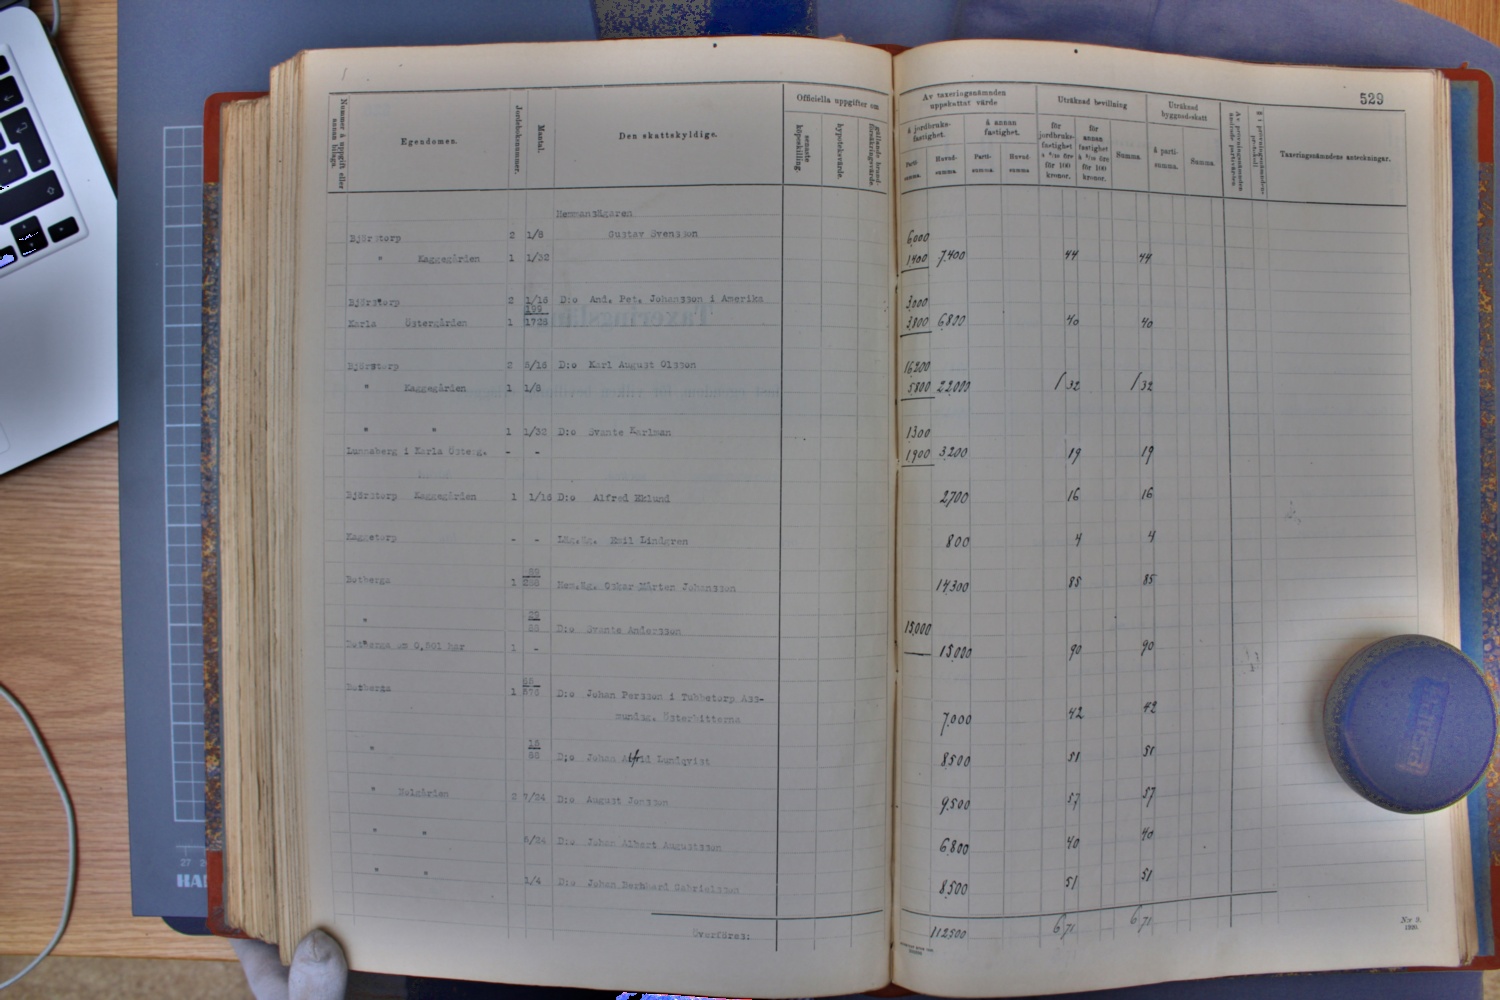 529
Nummer å uppgift eller annan bilaga.
Egendomen.
Jordeboksnummer.
Mantal.
Den skattskyldige.
Officiella uppgifter om
senaste köpeskilling.
hypoteksvärde.
gällande brandförsäkringsvärde.
Av taxeringsnämnden uppskattat värde
å jordbruksfastighet.
å annan fastighet.
Parti-summa.
Huvud-summa.
Parti-summa.
Huvud-summa
Uträknad bevillning
för jordbruksfastighet
för annan fastighet
för 100 kronor.
för 100 kronor.
Summa.
Uträknad byggnadsskatt
à partisumma.
Summa.
Taxeringsnämndens anteckningar.
Hemmansägaren
Björstorp 2 1/8 Gustav Svensson 6000
" Kaggegården 1 1/32 1400 7.400 44 44
Björstorp 2 1/16 D:o And. Pet. Johansson i Amerika 3000
Karla Östergården 1 199/1728 3,800 6,800 40 40
Björstorp 2 5/16 D:o Karl August Olsson 16200
" Kaggegården 1 1/8 5,800 22,000 132 132
" " 1 1/32 D:o Svante Karlman 1300
Lunnaberg i Karla Österg. - - 1900 3,200 19 19
Björstorp Kaggegården 1 1/16 D:o Alfred Eklund 2700 16 16
Kaggetorp - - Läg.äg. Emil Lindgren 800 4 4
Botberga 1 Hem.äg. Oskar Mårten Johansson 14,300 85 85
" D:o Svante Andersson 15,000
Botberga om 0,501 har 1 - 15,000 90 90
Botberga 1 D:o Johan Persson i Tubbetorp Ass-
munds. Österbitterna 7.000 42 42
" D:o Johan Alfrid Lundqvist 8,500 51 51
" Nolgården 2 7/24 D:o August Jansson 9,500 57 57
" " 5/24 D:o Johan Albert Augustsson 6800 40 40
" " 1/4 D:o Johan Bernhard Gabrielsson 8,500 51 51
Överföres: 112500 671 671
N:r 9.
HA
27